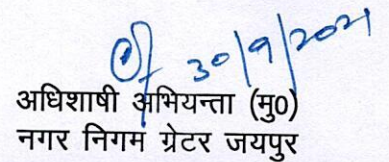 30/9/2021
अधिशाषी अभियन्ता (मु0)
नगर निगम ग्रेटर जयपुर